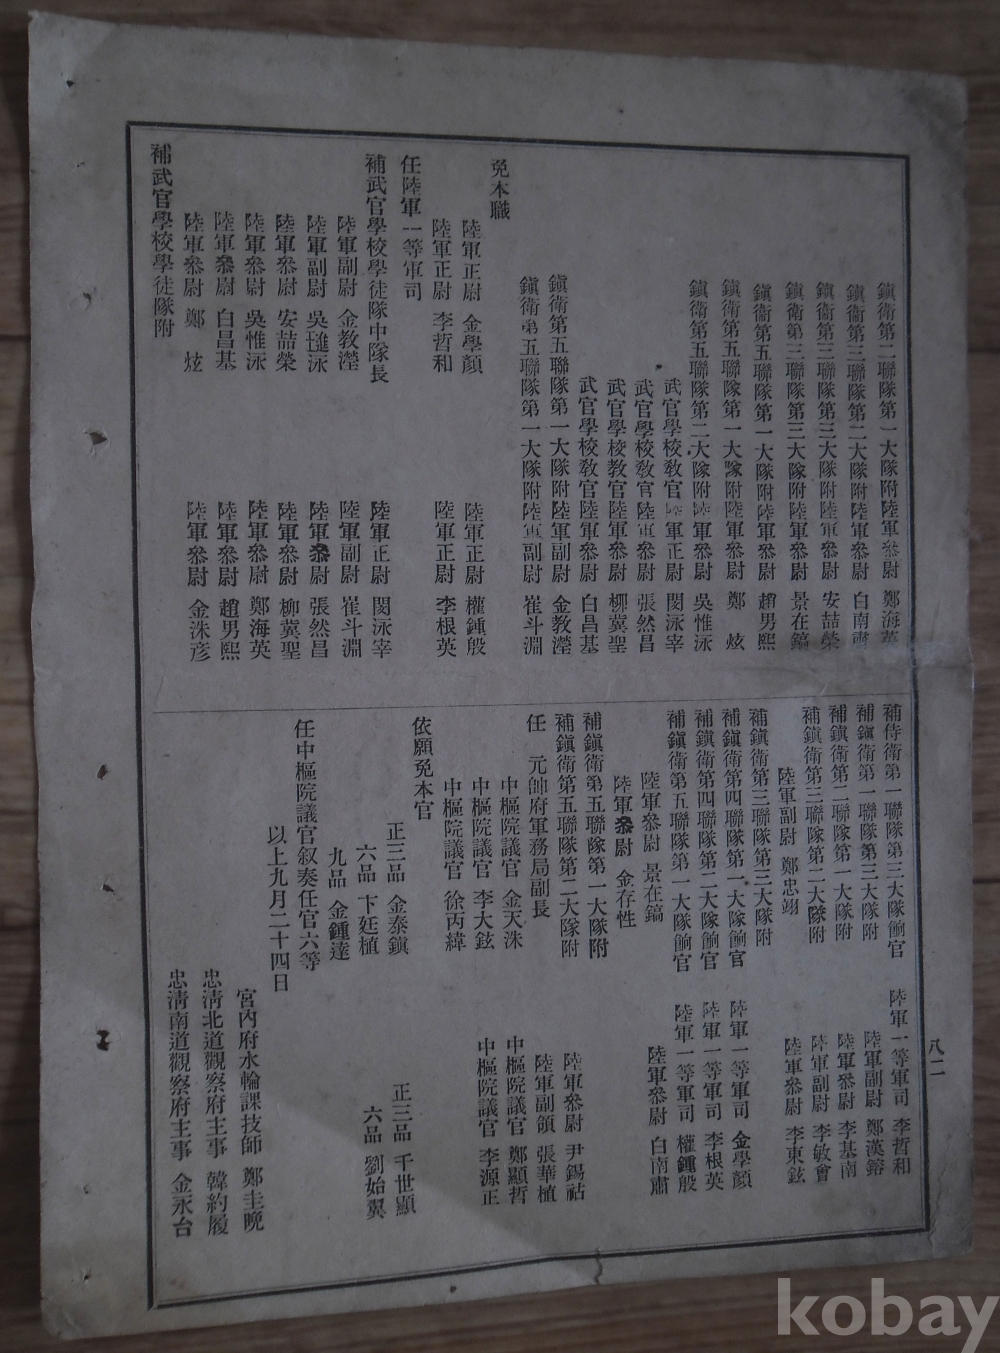 鎭衛第二聯隊第一大隊附陸軍叅尉 鄭海英
鎭衛第三聯隊第二大隊附陸軍叅尉 白南肅
鎭衛第三聯隊第三大隊附陸軍叅尉 安喆榮
鎭衛第三聯隊第三大隊附陸軍叅尉 景在鎬
鎭衛第五聯隊第一大隊附陸軍叅尉 趙男熙
鎭衛第五聯隊第一大隊附陸軍叅尉 鄭 炫
鎭衛第五聯隊第二大隊附陸軍叅尉 吳惟泳
武官學校敎官陸軍正尉 閔泳宰
武官學校敎官陸軍叅尉 張然昌
武官學校敎官陸軍叅尉 柳冀聖
武官學校敎官陸軍叅尉 白昌基
鎭衛第五聯隊第一大隊附陸軍副尉 金敎瀅
鎭衛第五聯隊第一大隊附陸軍副尉 崔斗淵
免本職
陸軍正尉 金學顔 陸軍正尉 權鍾殷
陸軍正尉 李哲和 陸軍正尉 李根英
任陸軍一等軍司
補武官學校學徒隊中隊長 陸軍正尉 閔泳宰
陸軍副尉 金敎瀅 陸軍副尉 崔斗淵
陸軍副尉 吳璡泳 陸軍叅尉 張然昌
陸軍叅尉 安喆榮 陸軍叅尉 柳冀聖
陸軍叅尉 吳惟泳 陸軍叅尉 鄭海英
陸軍叅尉 白昌基 陸軍叅尉 趙男熙
陸軍叅尉 鄭 炫 陸軍叅尉 金洙彦
補武官學校學徒隊附
八二
補侍衛第一聯隊第三大隊餉官 陸軍一等軍司 李哲和
補鎭衛第一聯隊第三大隊附 陸軍副尉 鄭漢鎔
補鎭衛第二聯隊第一大隊附 陸軍叅尉 李基南
補鎭衛第三聯隊第二大隊附 陸軍副尉 李敏會
陸軍副尉 鄭忠翊 陸軍叅尉 李東鉉
補鎭衛第三聯隊第三大隊附
補鎭衛第四聯隊第一大隊餉官 陸軍一等軍司 金學顔
補鎭衛第四聯隊第二大隊餉官 陸軍一等軍司 李根英
補鎭衛第五聯隊第一大隊餉官 陸軍一等軍司 權鍾殷
陸軍叅尉 景在鎬 陸軍叅尉 白南肅
陸軍叅尉 金存性
補鎭衛第五聯隊第一大隊附
補鎭衛第五聯隊第二大隊附 陸軍叅尉 尹錫祜
任 元帥府軍務局副長 陸軍副領 張華植
中樞院議官 金天洙 中樞院議官 鄭顯哲
中樞院議官 李大鉉 中樞院議官 李源正
中樞院議官 徐丙緯
依願免本官
正三品 金泰鎭 正三品 千世顯
六品 卞廷植 六品 劉始翼
九品 金鍾達
任中樞院議官叙奏任官六等
以上九月二十四日
宮內府水輪課技師 鄭圭晩
忠淸北道觀察府主事 韓約履
忠淸南道觀察府主事 金永台
kobay